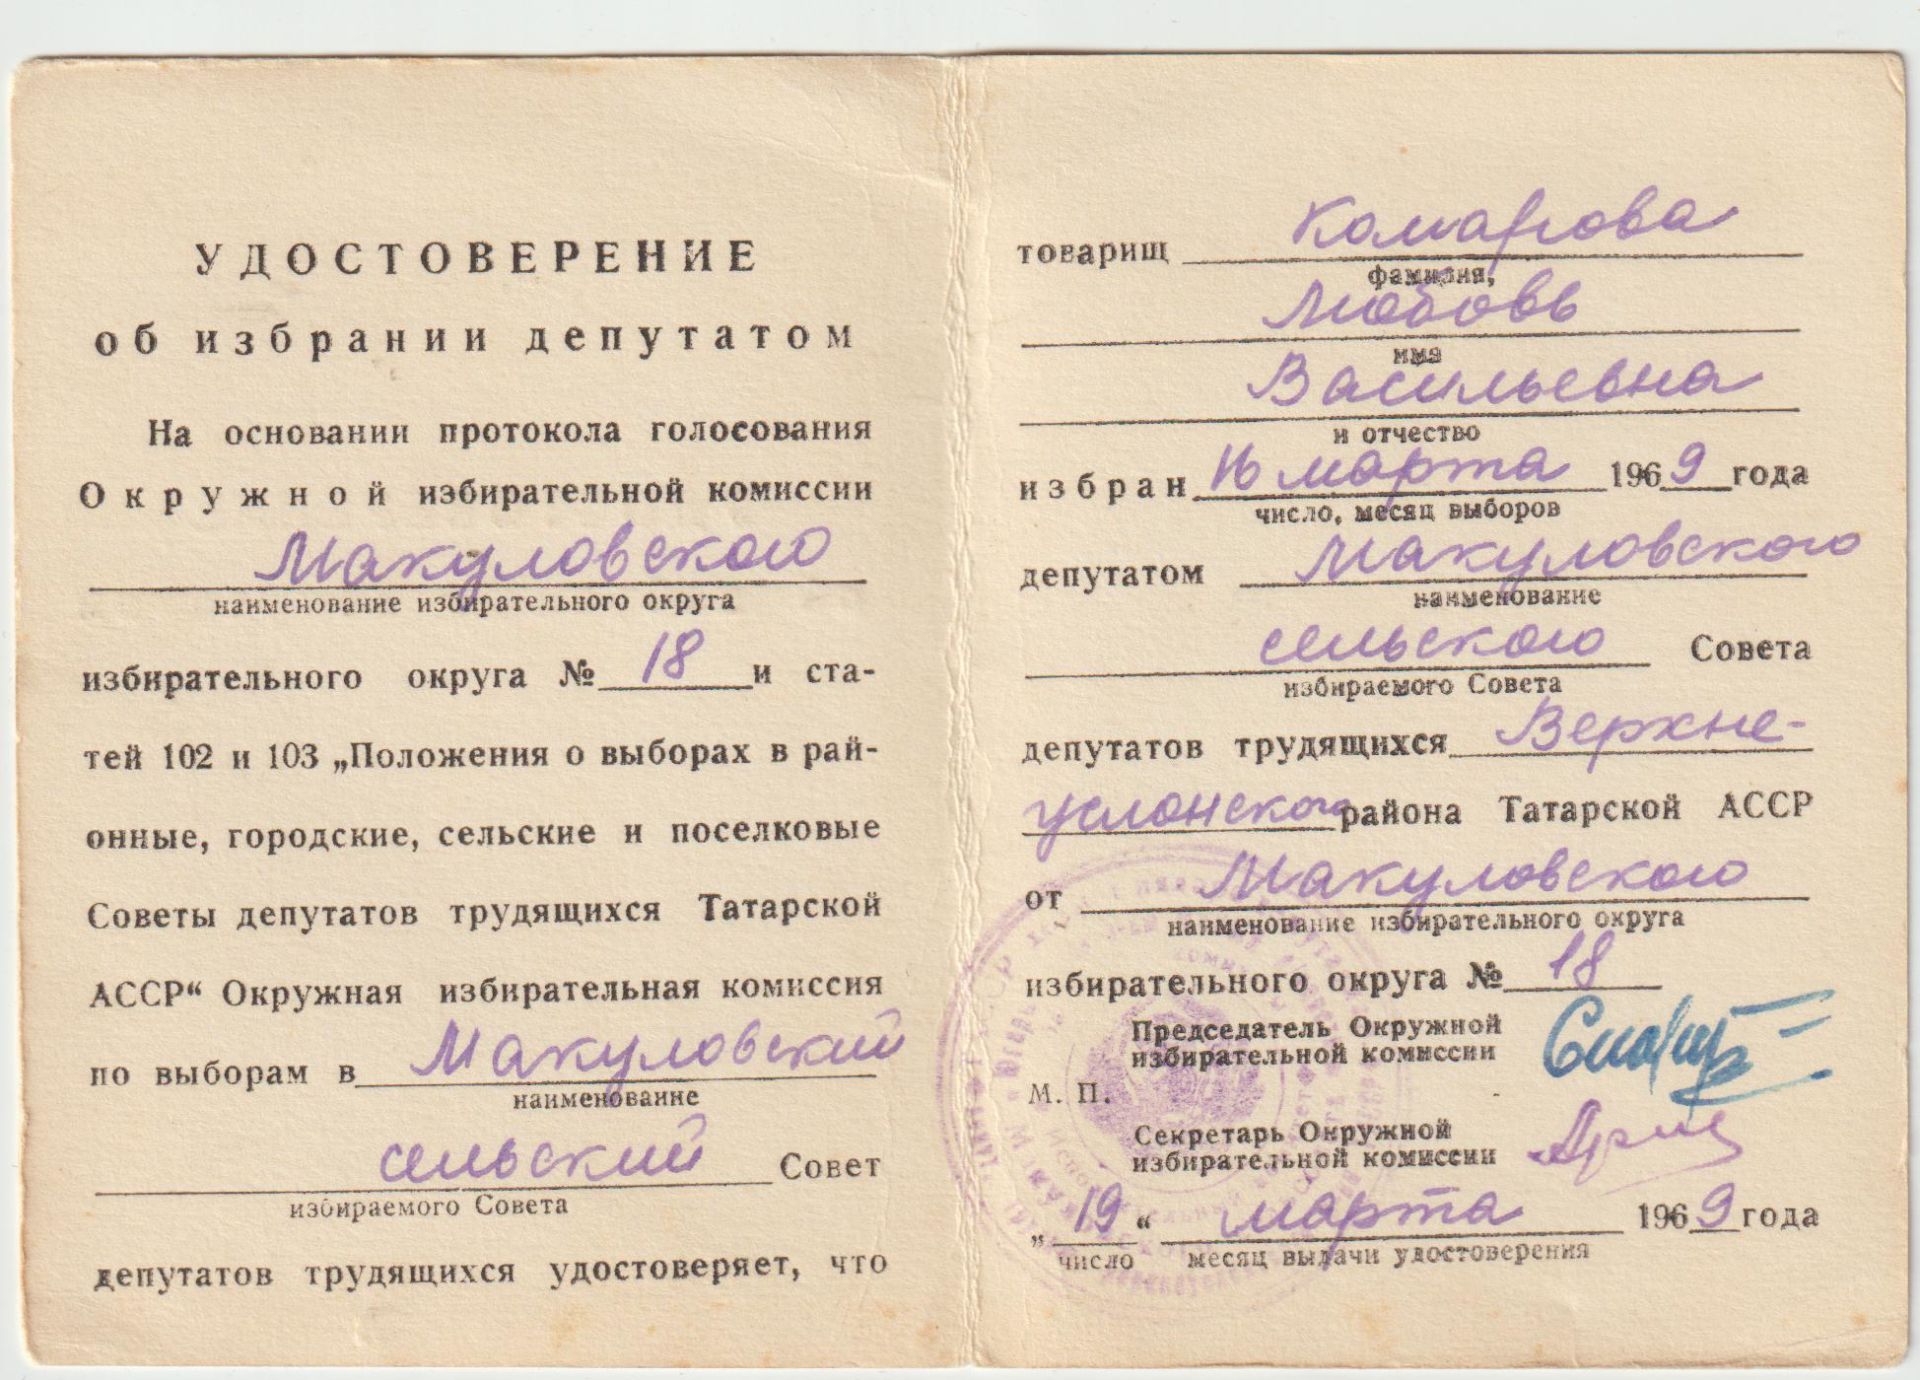 УДОСТОВЕРЕНИЕ
об избрании депутатом
На основании протокола голосования
Окружной избирательной комиссии
Макуловского
наименование избирательного округа
избирательного округа № 18 и ста-
тей 102 и 103 „Положения о выборах в рай-
онные, городские, сельские и поселковые
Советы депутатов трудящихся Татарской
АССР“ Окружная избирательная комиссия
по выборам в Макуловский
наименование
сельский Совет
избираемого Совета
депутатов трудящихся удостоверяет, что
товарищ Комарова
фамилия,
Любовь
имя
Васильевна
и отчество
избран 16 марта 1969 года
число, месяц выборов
депутатом Макуловского
наименование
сельского Совета
избираемого Совета
депутатов трудящихся Верхне-
услонского района Татарской АССР
от Макуловского
наименование избирательного округа
избирательного округа № 18
Председатель Окружной
избирательной комиссии
М. П.
Секретарь Окружной
избирательной комиссии
„19“ марта 1969 года
число месяц выдачи удостоверения